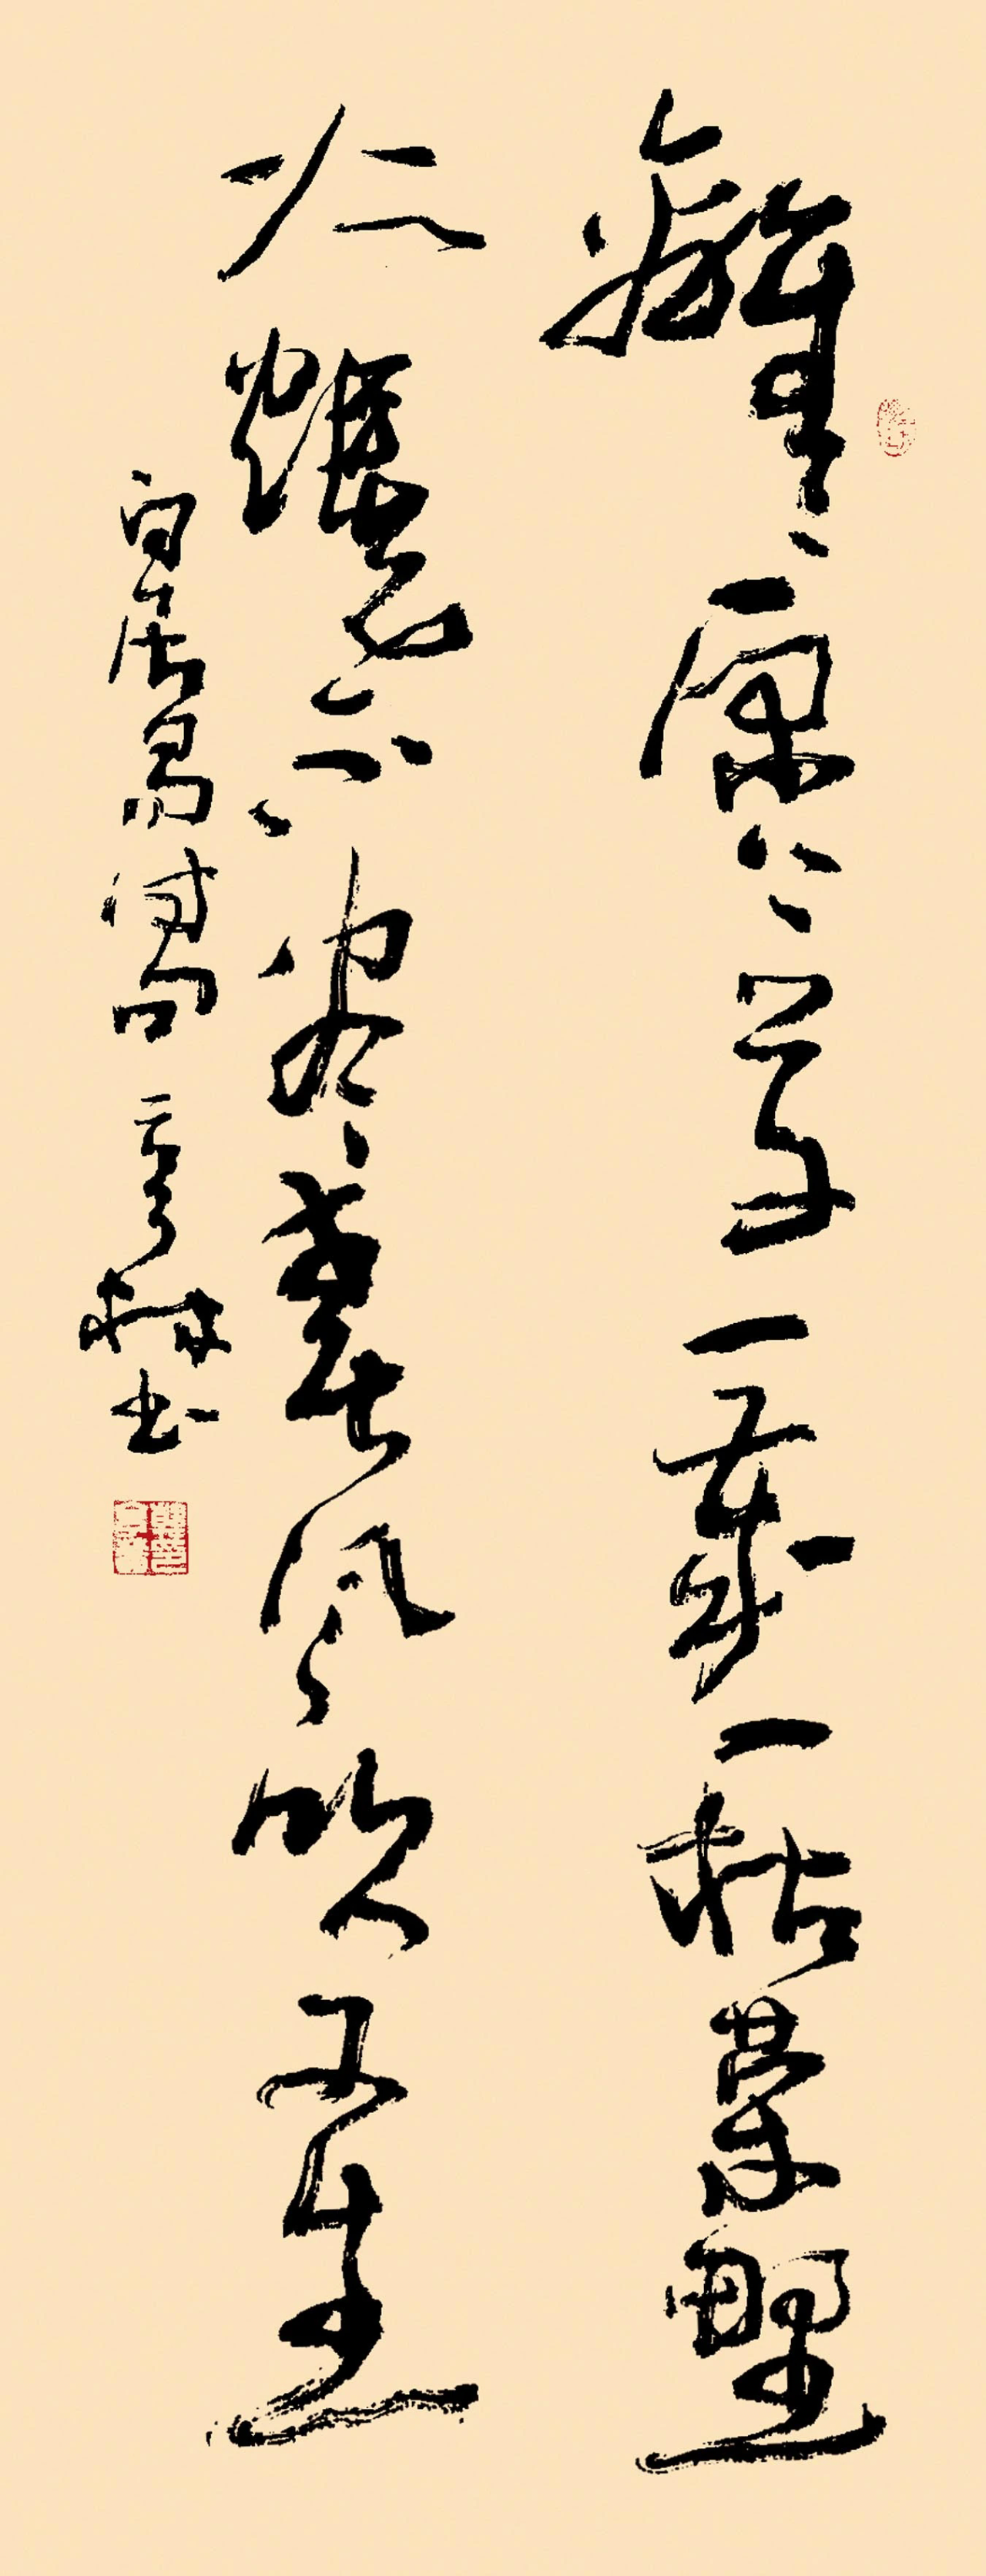 離離原上草一歲一枯榮野
火燒不盡春風吹又生
白居易詩句 亨林书